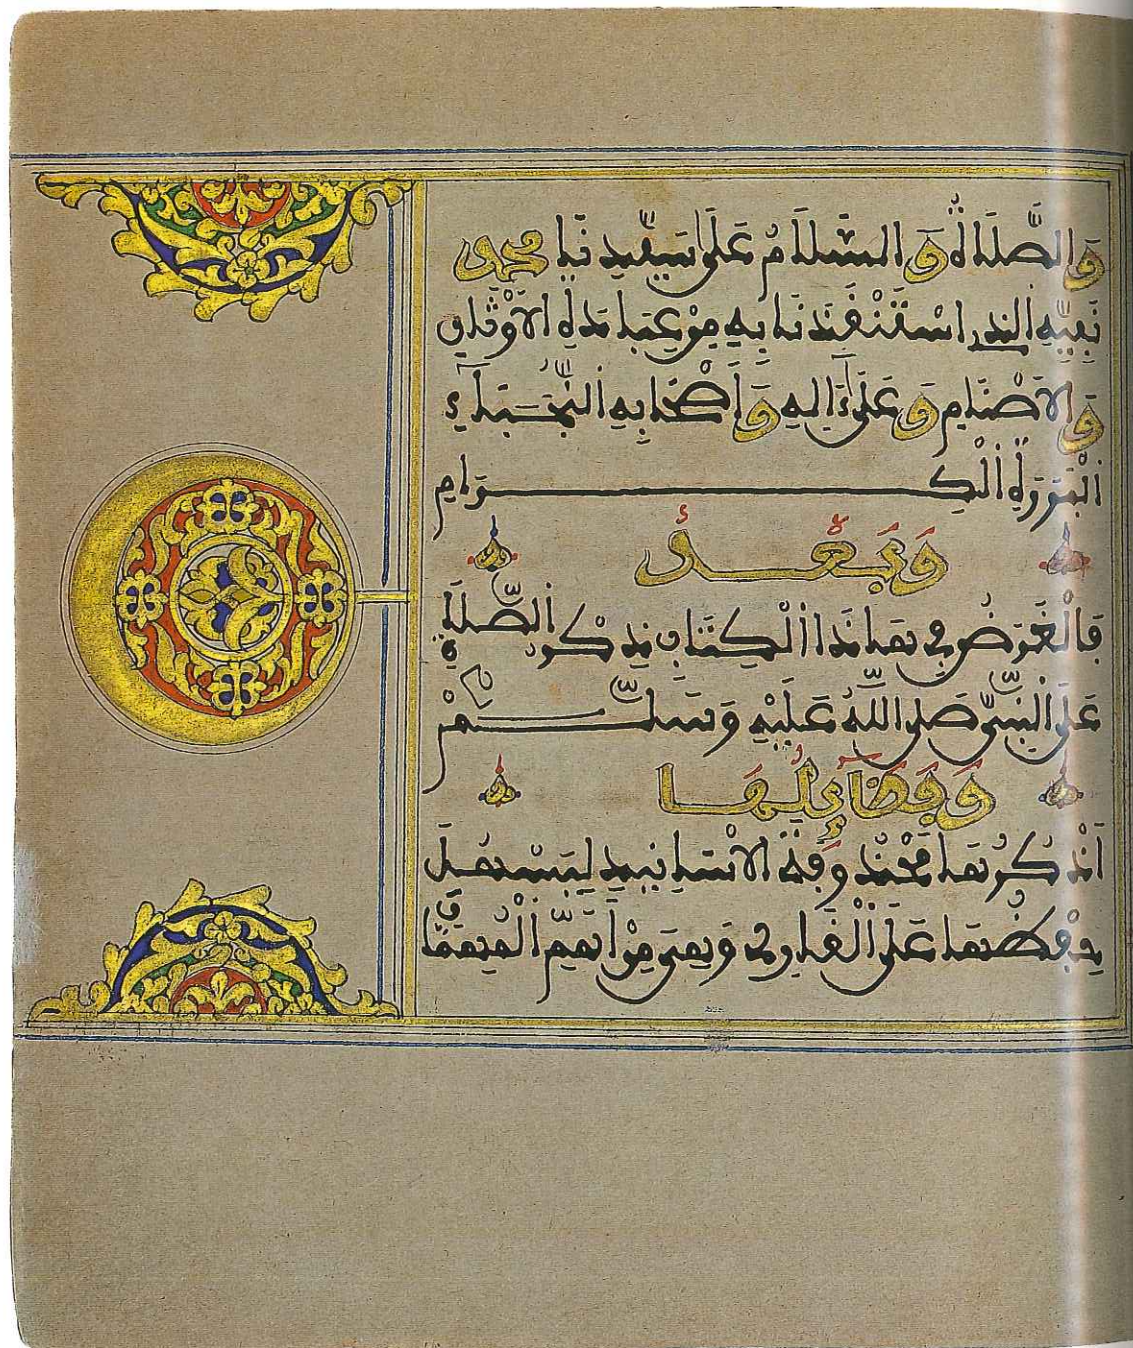 وَالصَّلَاةُ وَالسَّلَامُ عَلَىٰ سَيِّدِنَا مُحَمَّد
نَبِيِّهِ الَّذِي اسْتَنْقَذَنَا بِهِ مِنْ عِبَادَةِ الاَوْثَانِ
وَالاَصْنَامِ وَعَلَىٰ ءَالِهِ وَأَصْحَابِهِ النُّجَبَآءِ
الْبَرَرَةِ الْكِرَامِ
وَبَعْدُ
فَالْغَرَضُ فِي هَذَا الْكِتَابِ ذِكْرُ الصَّلَاةِ
عَلَى النَّبِيِّ صَلَّى اللَّهُ عَلَيْهِ وَسَلَّمَ
وَفَضَآئِلُهَا
أَذْكُرُهَا مَحْذُوفَةَ الاَسَانِيدِ لِيَسْهُلَ
حِفْظُهَا عَلَى الْقَارِئِ وَهِيَ مِنْ أَهَمِّ الْمُهِمَّاتِ